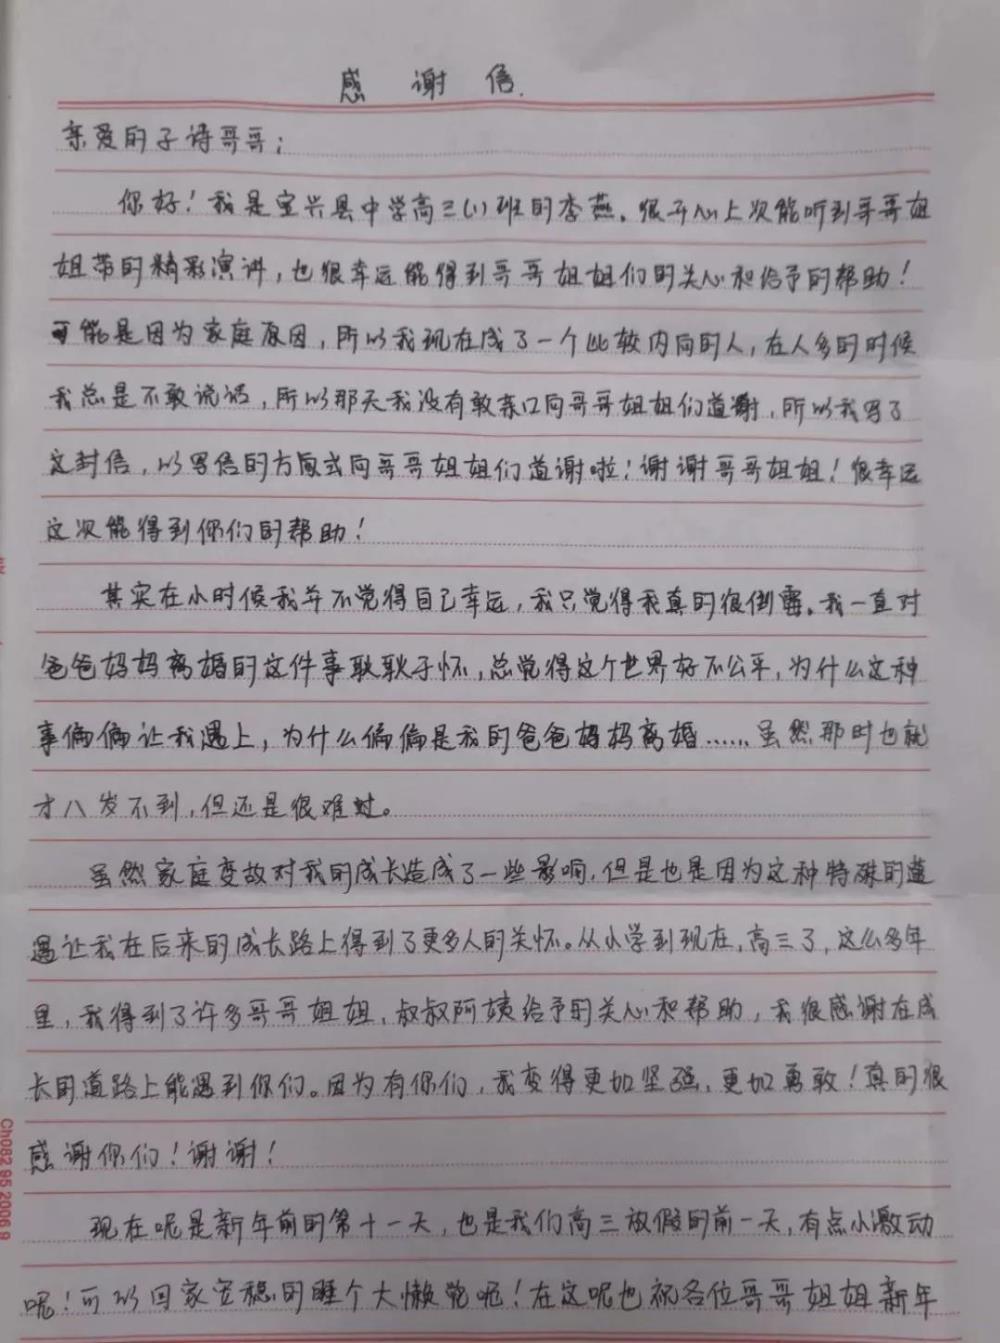 感谢信.
亲爱的子诗哥哥:
你好！我是宝兴县中学高三(1)班的李燕。很开心上次能听到哥哥姐
姐带的精彩演讲，也很幸运能得到哥哥姐姐们的关心和给予的帮助！
可能是因为家庭原因，所以我现在成了一个比较内向的人，在人多的时候
我总是不敢说话，所以那天我没有敢亲口向哥哥姐姐们道谢，所以我写了
这封信，以写信的方式向哥哥姐姐们道谢啦！谢谢哥哥姐姐！很幸运
这次能得到你们的帮助！
其实在小时候我并不觉得自己幸运，我只觉得我真的很倒霉。我一直对
爸爸妈妈离婚的这件事耿耿于怀，总觉得这个世界好不公平，为什么这种
事偏偏让我遇上，为什么偏偏是我的爸爸妈妈离婚……虽然那时也就
才八岁不到，但还是很难过。
虽然家庭变故对我的成长造成了一些影响，但是也是因为这种特殊的遭
遇让我在后来的成长路上得到了更多人的关怀。从小学到现在，高三了，这么多年
里，我得到了许多哥哥姐姐、叔叔阿姨给予的关心和帮助，我很感谢在成
长的道路上能遇到你们。因为有你们，我变得更加坚强、更加勇敢！真的很
感谢你们！谢谢！
现在呢是新年前的第十一天，也是我们高三放假的前一天，有点小激动
呢！可以回家安稳的睡个大懒觉呢！在这呢也祝各位哥哥姐姐新年
Ch082 95 2006 9